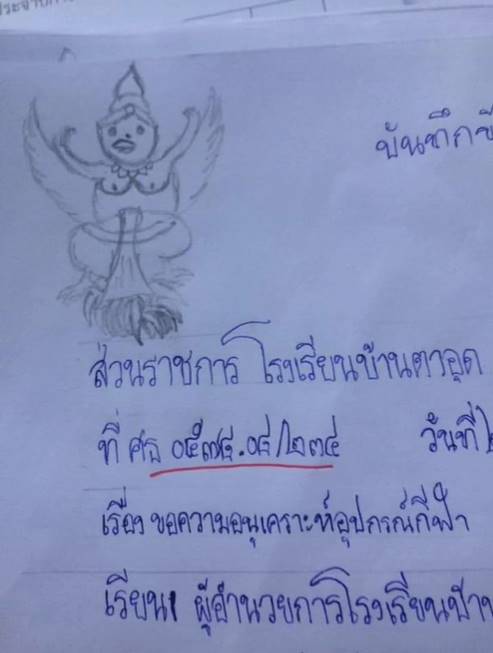 บันทึกข้
ส่วนราชการ โรงเรียนบ้านตาอุด
ที่ ศธ ๐๕๗๔.๐๘/๒๓๔ วันที่
เรื่อง ขอความอนุเคราะห์อุปกรณ์กีฬา
เรียน ผู้อำนวยการโรงเรียนบ้าน